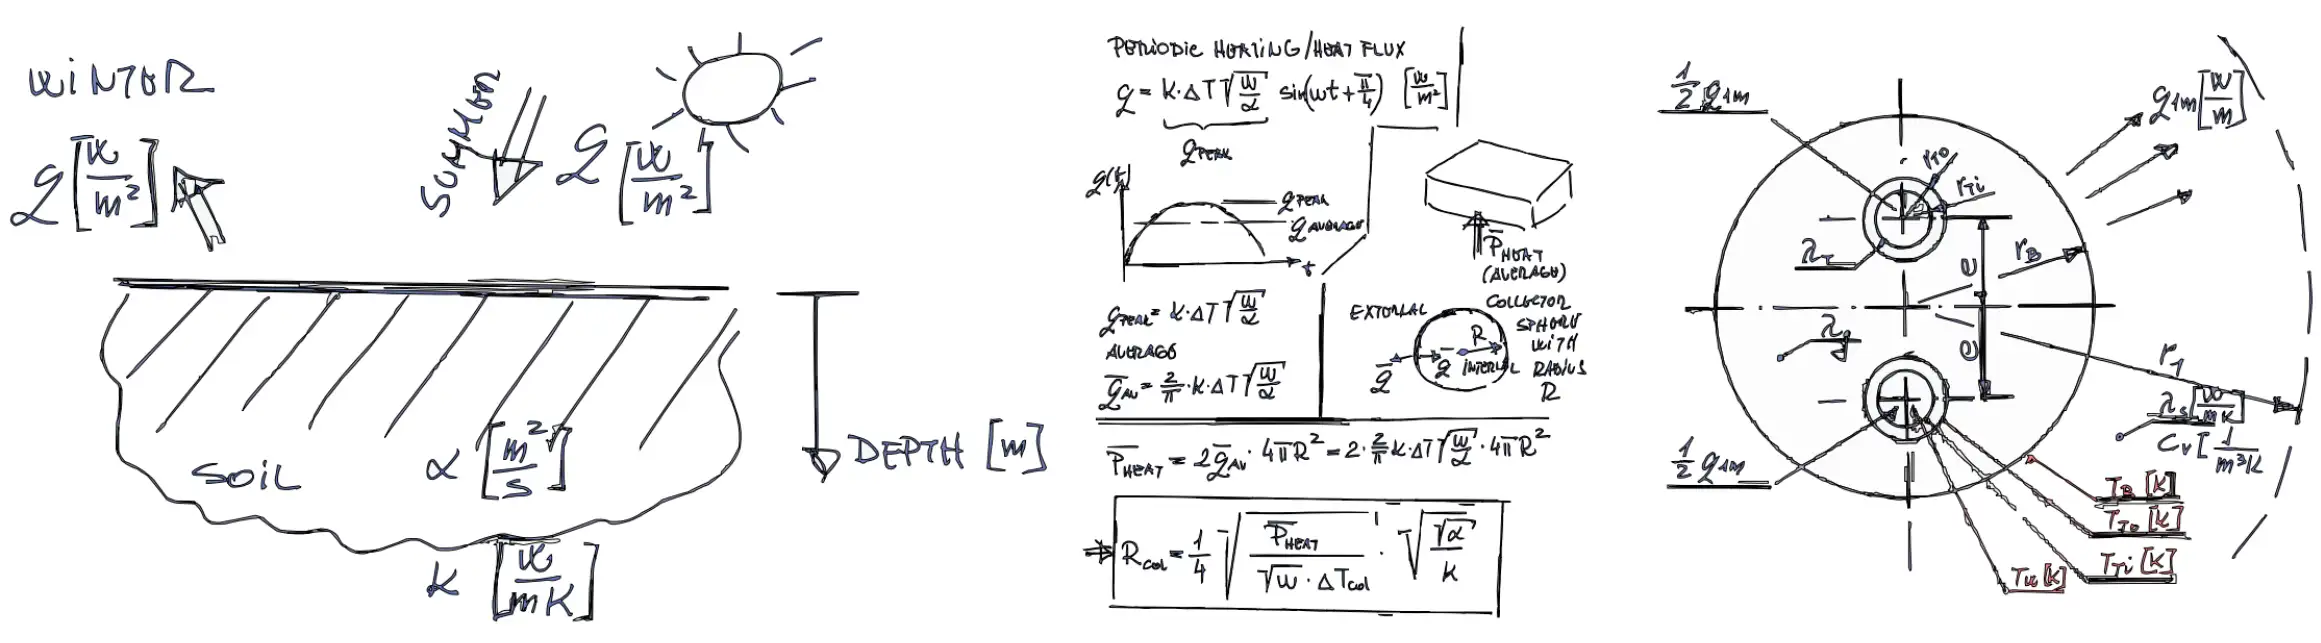 WINTER
q [W/m²]
SUMMER
q [W/m²]
SOIL
α [m²/s]
k [W/mK]
DEPTH [m]
PERIODIC HEATING/HEAT FLUX
q = K·ΔT √(w/α) sin(wt + π/4) [W/m²]
q PEAK
q(t)
q PEAK
q AVERAGE
t
q PEAK = K·ΔT √(w/α)
AVERAGE
q̅ AV = 2/π · K·ΔT √(w/α)
P̅ HEAT
(AVERAGE)
COLLECTOR
SPHERE
WITH
RADIUS
R
EXTERNAL
R
q̅
q̅ INTERNAL
P̅ HEAT = 2q̅ AV · 4πR² = 2· 2/π K·ΔT √(w/α) · 4πR²
⇒ R COL = 1/4 √(P̅ HEAT / (√w · ΔT COL)) · √(√α / K)
1/2 q 1m
q 1m [W/m]
r To
r Ti
λ T
r B
e
λ g
e
r 1
λ s [W/mK]
C v [1/m³K
1/2 q 1m
T B [K]
T To [K]
T Ti [K]